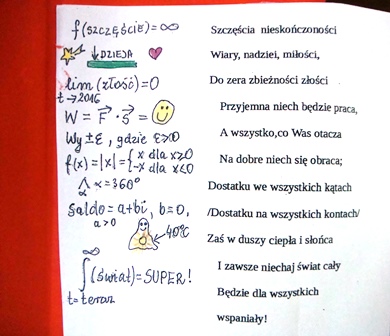 f(SZCZĘŚCIE) = ∞
↓DZIEJA
lim (złość) = 0
t→2016
W = F⃗ · S⃗ =
Wy ± ε, gdzie ε→∞
f(x) = |x| = { x dla x≥0
-x dla x≤0
⋀ α = 360°
α
saldo = a+bi, b=0,
a>0
40°C
∞
∫(świat) = SUPER!
t=teraz
Szczęścia nieskończoności
Wiary, nadziei, miłości,
Do zera zbieżności złości
Przyjemna niech będzie praca,
A wszystko,co Was otacza
Na dobre niech się obraca;
Dostatku we wszystkich kątach
/Dostatku na wszystkich kontach/
Zaś w duszy ciepła i słońca
I zawsze niechaj świat cały
Będzie dla wszystkich
wspaniały!